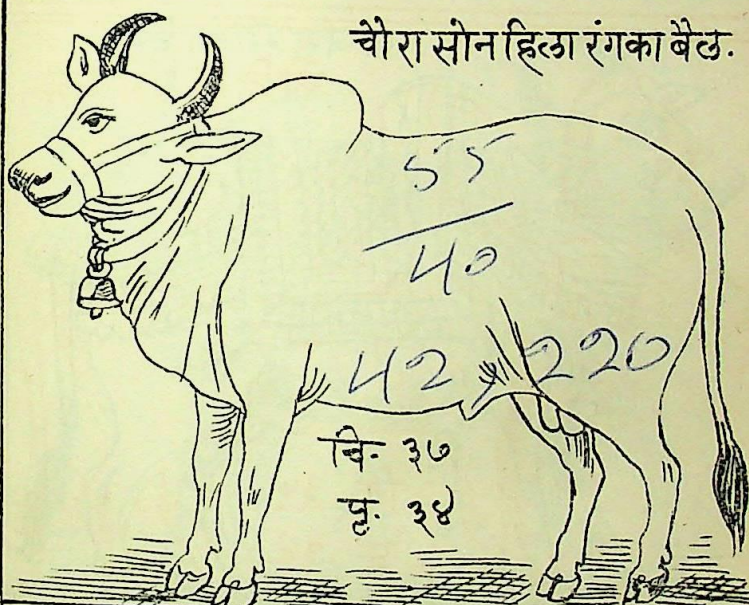 चौरा सोनहिला रंगका बैल.
55
40
42, 220
चि- ३७
पृ- ३४